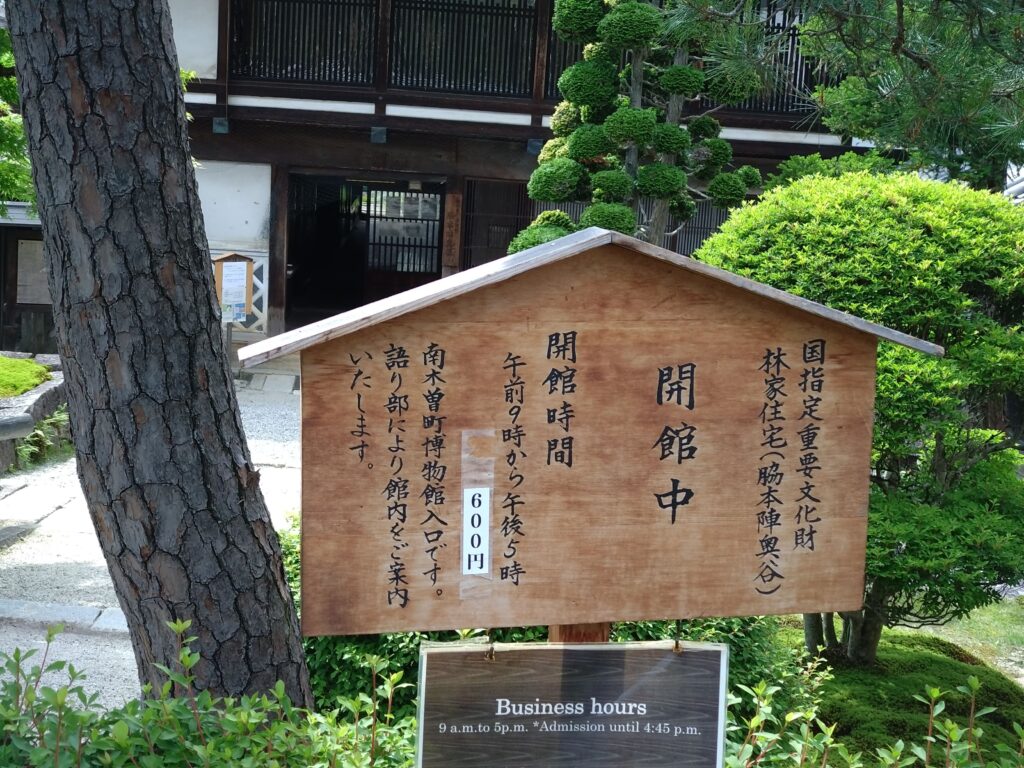 国指定重要文化財
林家住宅(脇本陣奥谷)
開館中
開館時間
午前9時から午後5時
600円
南木曽町博物館入口です。
語り部により館内をご案内
いたします。
Business hours
9 a.m.to 5p.m. *Admission until 4:45 p.m.